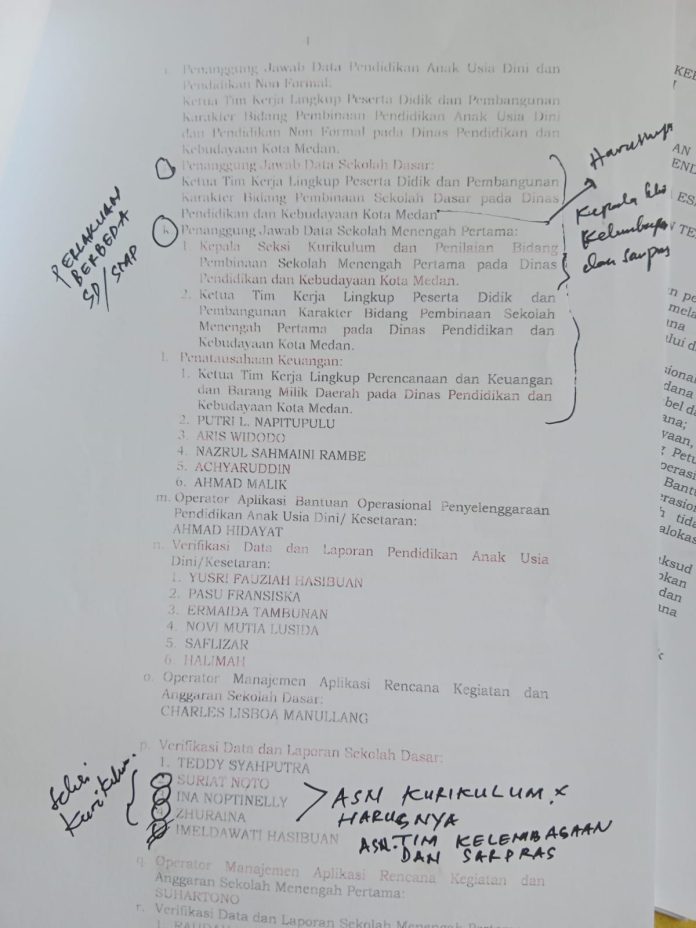 4
i. Penanggung Jawab Data Pendidikan Anak Usia Dini dan
Pendidikan Non Formal:
Ketua Tim Kerja Lingkup Peserta Didik dan Pembangunan
Karakter Bidang Pembinaan Pendidikan Anak Usia Dini
dan Pendidikan Non Formal pada Dinas Pendidikan dan
Kebudayaan Kota Medan.
Penanggung Jawab Data Sekolah Dasar:
Ketua Tim Kerja Lingkup Peserta Didik dan Pembangunan
Karakter Bidang Pembinaan Sekolah Dasar pada Dinas
Pendidikan dan Kebudayaan Kota Medan
k. Penanggung Jawab Data Sekolah Menengah Pertama:
1. Kepala Seksi Kurikulum dan Penilaian Bidang
Pembinaan Sekolah Menengah Pertama pada Dinas
Pendidikan dan Kebudayaan Kota Medan.
2. Ketua Tim Kerja Lingkup Peserta Didik dan
Pembangunan Karakter Bidang Pembinaan Sekolah
Menengah Pertama pada Dinas Pendidikan dan
Kebudayaan Kota Medan.
l. Penatausahaan Keuangan:
1. Ketua Tim Kerja Lingkup Perencanaan dan Keuangan
dan Barang Milik Daerah pada Dinas Pendidikan dan
Kebudayaan Kota Medan.
2. PUTRI L. NAPITUPULU
3. ARIS WIDODO
4. NAZRUL SAHMAINI RAMBE
5. ACHYARUDDIN
6. AHMAD MALIK
m. Operator Aplikasi Bantuan Operasional Penyelenggaraan
Pendidikan Anak Usia Dini/ Kesetaran:
AHMAD HIDAYAT
n. Verifikasi Data dan Laporan Pendidikan Anak Usia
Dini/Kesetaran:
1. YUSRI FAUZIAH HASIBUAN
2. PASU FRANSISKA
3. ERMAIDA TAMBUNAN
4. NOVI MUTIA LUSIDA
5. SAFLIZAR
6. HALIMAH
o. Operator Manajemen Aplikasi Rencana Kegiatan dan
Anggaran Sekolah Dasar:
CHARLES LISBOA MANULLANG
p. Verifikasi Data dan Laporan Sekolah Dasar:
1. TEDDY SYAHPUTRA
SURIAT NOTO
INA NOPTINELLY
ZHURAINA
IMELDAWATI HASIBUAN
q. Operator Manajemen Aplikasi Rencana Kegiatan dan
Anggaran Sekolah Menengah Pertama:
SUHARTONO
r. Verifikasi Data dan Laporan Sekolah Menengah Pertama
PERLAKUAN
BERBEDA
SD/SMP
Harusnya
Kepala
Kelembagaan
dan Sarpras
Seksi
Kurikulum.
ASN KURIKULUM
HARUSNYA
ASN. TIM KELEMBAGAAN
DAN SARPRAS